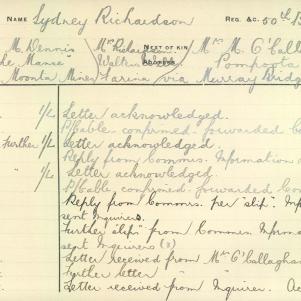 NAME Sydney Richardson REG. &C. 50th B
M. Dennis Mrs Richardson NEXT OF KIN Mrs M. O'Callag
Manse ADDRESS Pompoota
Moonta Mines Farina via Murray Bridge
1/L Letter acknowledged.
P/Cable. confirmed. forwarded Co
Further 1/L Letter acknowledged.
Reply from Commrs. Information
" 1/L Letter acknowledged.
P/Cable, confirmed. forwarded Co
Reply from Commrs. per "slip". Inf
sent Inquirers.
Further "slips" from Commrs. Informa
sent Inquirers (3)
Letter received from Mrs O'Callaghan
Further letter " "
Letter received from Inquirer. Ac